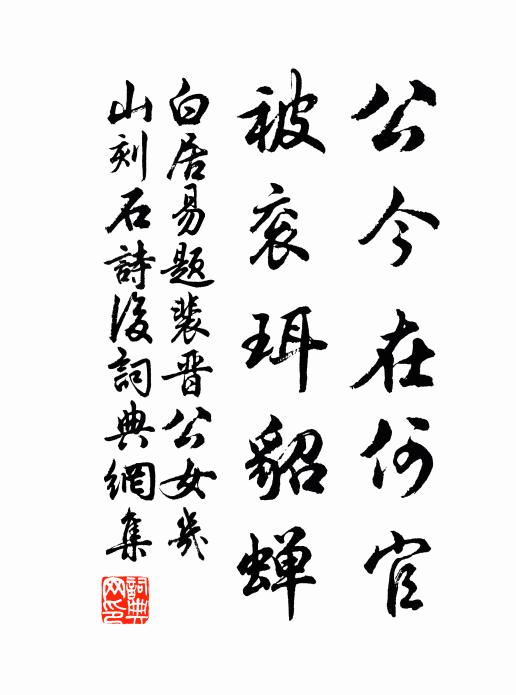 公今在何官
被衮珥貂蝉
白居易题裴晋公女几
山刻石詩後詞典網集
詞典
网印